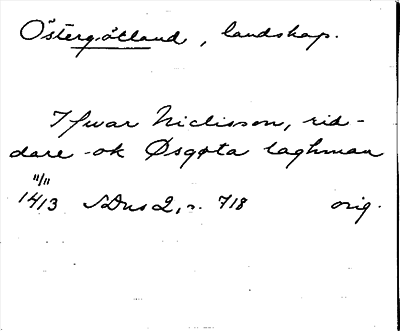 Östergötland, landskap.
Ifwar Niclisson, rid-
dare ok Øsgøta laghman
11/11
1413 SDns 2, n. 718 orig.